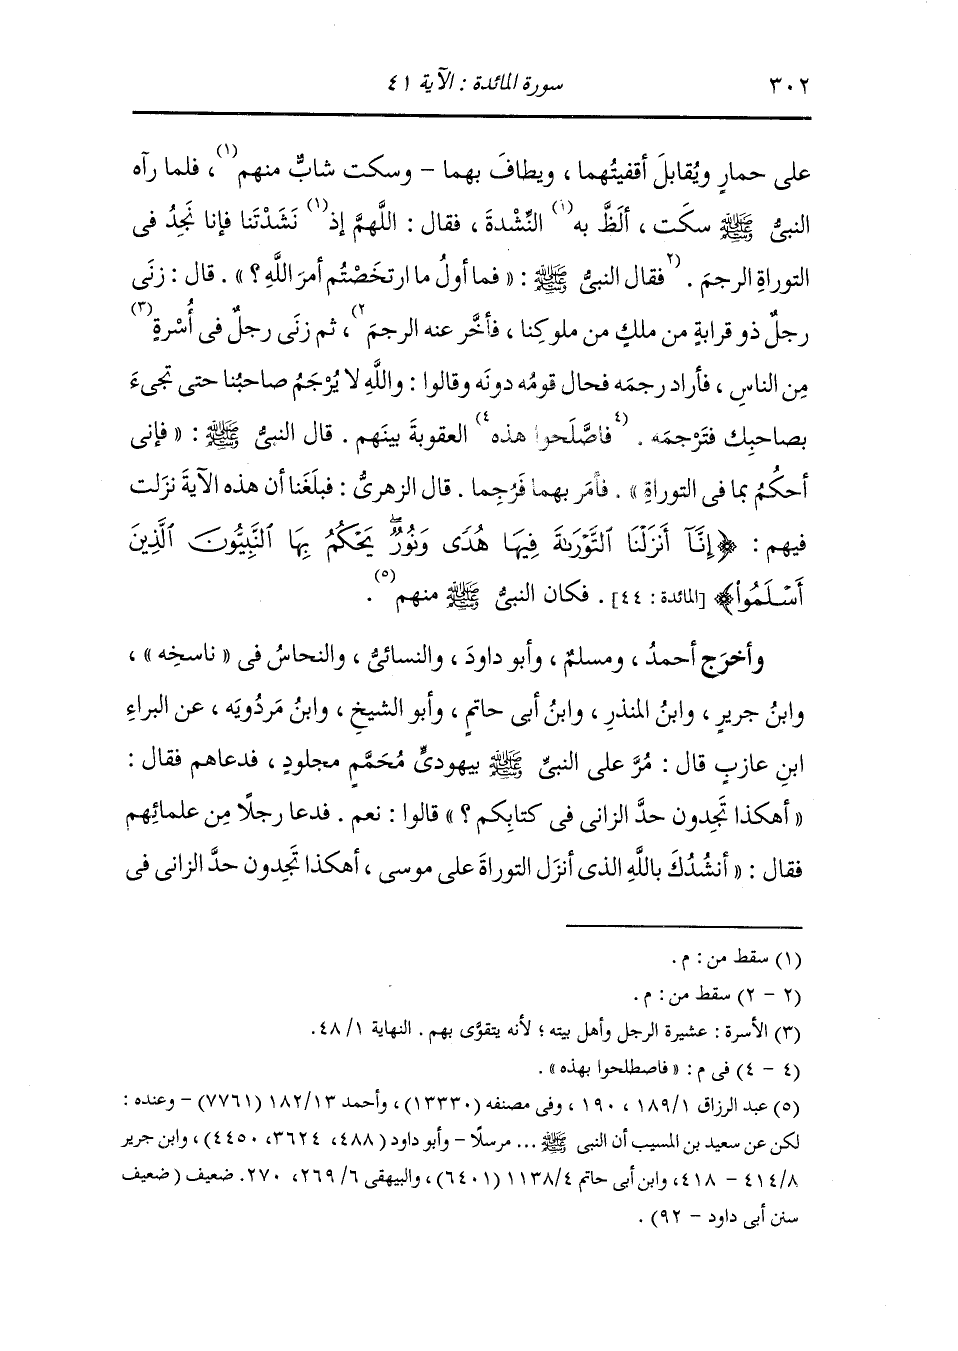 ٣٠٢ سورة المائدة : الآية ٤١
على حمارٍ ويُقابلَ أقفيتُهما ، ويطافَ بهما – وسكت شابٌّ منهم(١) ، فلما رآه
النبىُّ ﷺ سكَت ، ألَظَّ به(١) النِّشْدةَ ، فقال : اللَّهمَّ إذ(١) نَشَدْتَنا فإنا نَجَدُ فى
التوراةِ الرجمَ . (٢فقال النبىُّ ﷺ : « فما أولُ ما ارتخَصْتُم أمرَ اللَّهِ ؟ » . قال : زنَى
رجلٌ ذو قرابةٍ من ملكٍ من ملوكِنا ، فأخَّر عنه الرجمَ٢) ، ثم زنَى رجلٌ فى أُسْرةٍ(٣)
مِن الناسِ ، فأراد رجمَه فحال قومُه دونَه وقالوا : واللَّهِ لا يُرْجَمُ صاحبُنا حتى تجىءَ
بصاحبِك فتَرْجمَه . (٤فاصَّلَحوا هذه٤) العقوبةَ بينَهم . قال النبىُّ ﷺ : « فإنى
أحكُمُ بما فى التوراةِ » . فأمَر بهما فَرُجِما . قال الزهرىُّ : فبلَغَنا أن هذه الآيةَ نزَلت
فيهم : ﴿إِنَّآ أَنزَلْنَا ٱلتَّوْرَىٰةَ فِيهَا هُدًى وَنُورٌۚ يَحْكُمُ بِهَا ٱلنَّبِيُّونَ ٱلَّذِينَ
أَسْلَمُوا۟﴾ [المائدة : ٤٤] . فكان النبىُّ ﷺ منهم(٥) .
وأخرَج أحمدُ ، ومسلمٌ ، وأبو داودَ ، والنسائىُّ ، والنحاسُ فى « ناسخِه » ،
وابنُ جريرٍ ، وابنُ المنذرِ ، وابنُ أبى حاتمٍ ، وأبو الشيخِ ، وابنُ مَردُويَه ، عن البراءِ
ابنِ عازبٍ قال : مُرَّ على النبىِّ ﷺ بيهودىٍّ مُحَمَّمٍ مجلودٍ ، فدعاهم فقال :
« أهكذا تَجِدون حدَّ الزانى فى كتابِكم ؟ » قالوا : نعم . فدعا رجلًا مِن علمائِهم
فقال : « أنشُدُكَ باللَّهِ الذى أنزَل التوراةَ على موسى ، أهكذا تَجِدون حدَّ الزانى فى
(١) سقط من : م .
(٢ – ٢) سقط من : م .
(٣) الأسرة : عشيرة الرجل وأهل بيته ؛ لأنه يتقوَّى بهم . النهاية ١/ ٤٨.
(٤ – ٤) فى م : « فاصطلحوا بهذه » .
(٥) عبد الرزاق ١/ ١٨٩ ، ١٩٠ ، وفى مصنفه (١٣٣٣٠) ، وأحمد ١٣/ ١٨٢ (٧٧٦١) – وعنده :
لكن عن سعيد بن المسيب أن النبى ﷺ ... مرسلًا – وأبو داود ( ٤٨٨، ٣٦٢٤، ٤٤٥٠) ، وابن جرير
٨/ ٤١٤ – ٤١٨، وابن أبى حاتم ٤/ ١١٣٨ (٦٤٠١) ، والبيهقى ٦/ ٢٦٩، ٢٧٠. ضعيف ( ضعيف
سنن أبى داود – ٩٢) .